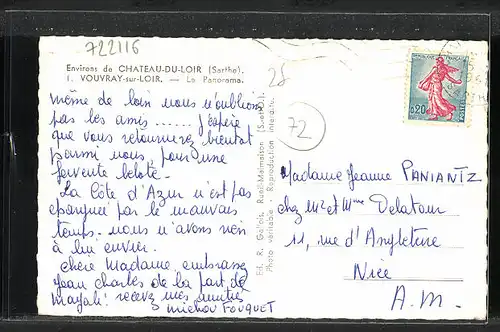 722116
Environs de CHATEAU-DU-LOIR (Sarthe).
1. VOUVRAY-sur-LOIR. — Le Panorama.
même de loin nous n'oublions
pas les amis ...... j'espère
que vous retournerez bientôt
parmi nous, pour une
fervente belote.
La Côte d'Azur n'est pas
épargnée par le mauvais
temps. nous n'avons rien
à lui envier.
Chère Madame embrassez
Jean Charles de la part de
Magali: recevez mes amitiés
Michou FOUQUET
Ed. R. Rueil-Malmaison (S.-et-O.).
Photo véritable - Reproduction interdite.
28
72
REPUBLIQUE FRANÇAISE
0,20
POSTES
Madame Jeanne PANIANTZ
chez Mr et Mme Delatour
11, rue d'Angleterre
Nice
A.M.